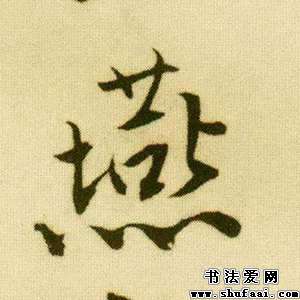 燕
书法爱网
www.shufaai.com